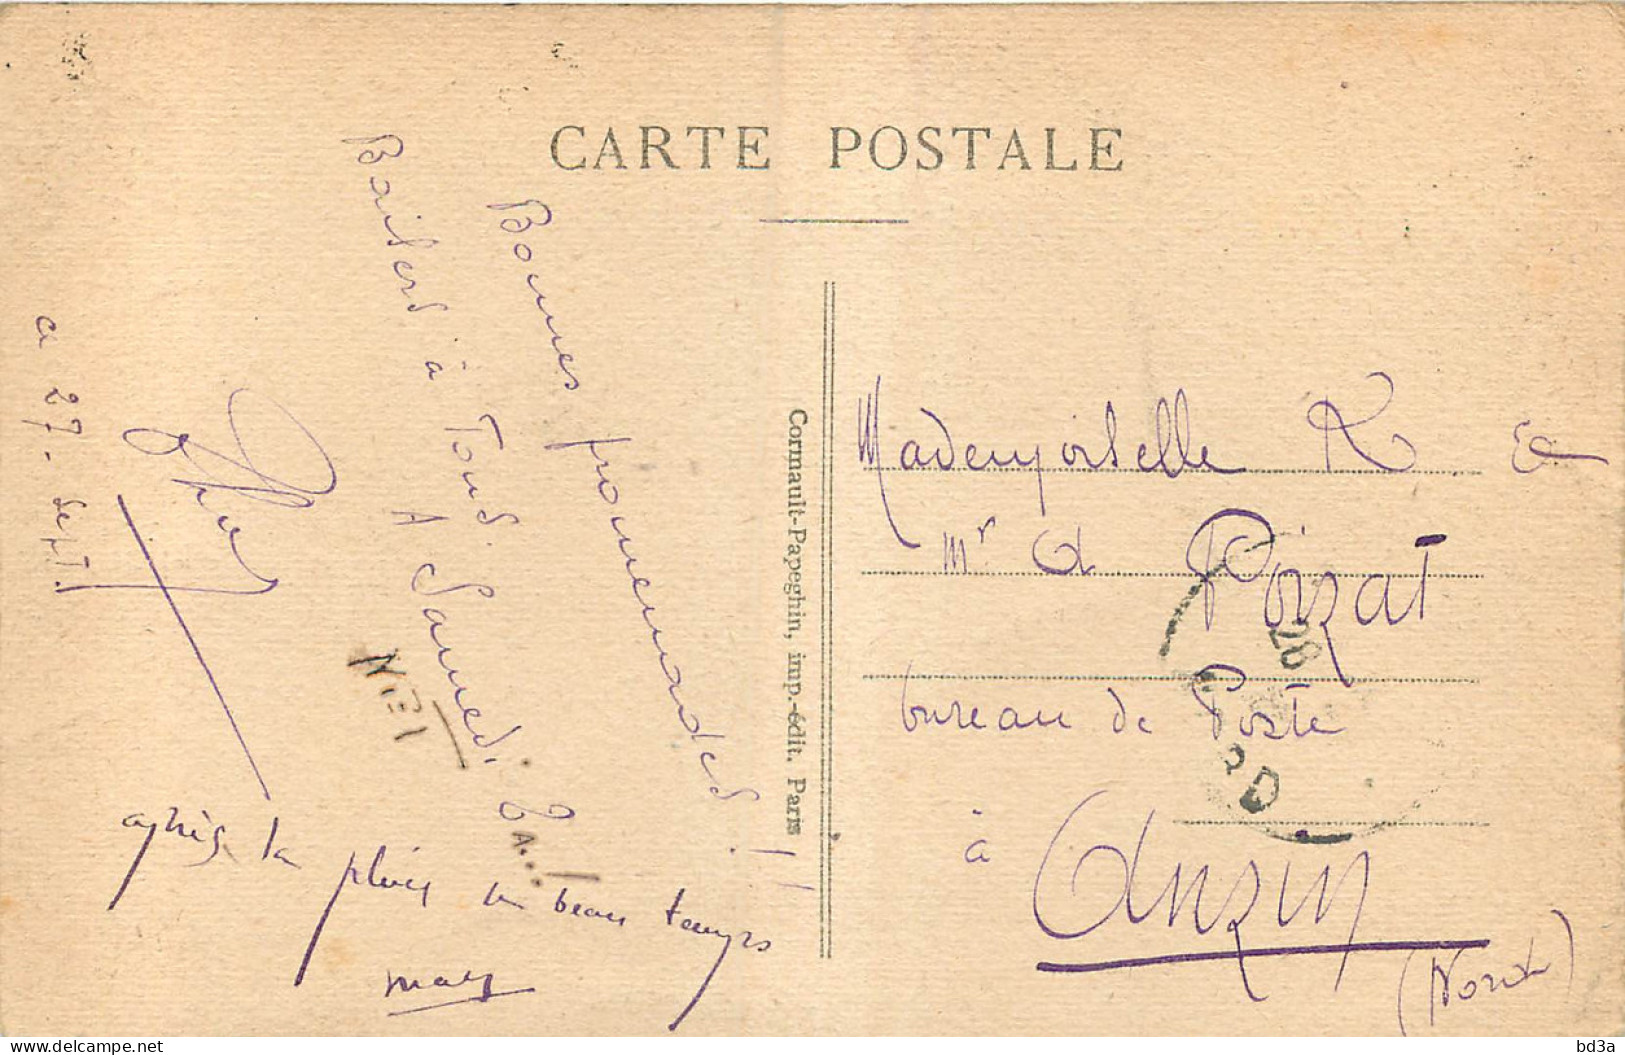 CARTE POSTALE
Bonnes promenades !
Baisers à Tous.
A Samedi
ce 27 - Sept.
après la pluie un beau temps
Cormault-Papeghin, imp.-édit. Paris
Mademoiselle R
Mr Poizat
bureau de Poste
à Anzin
(Nord)
28
RD
delcampe.net
bd3a